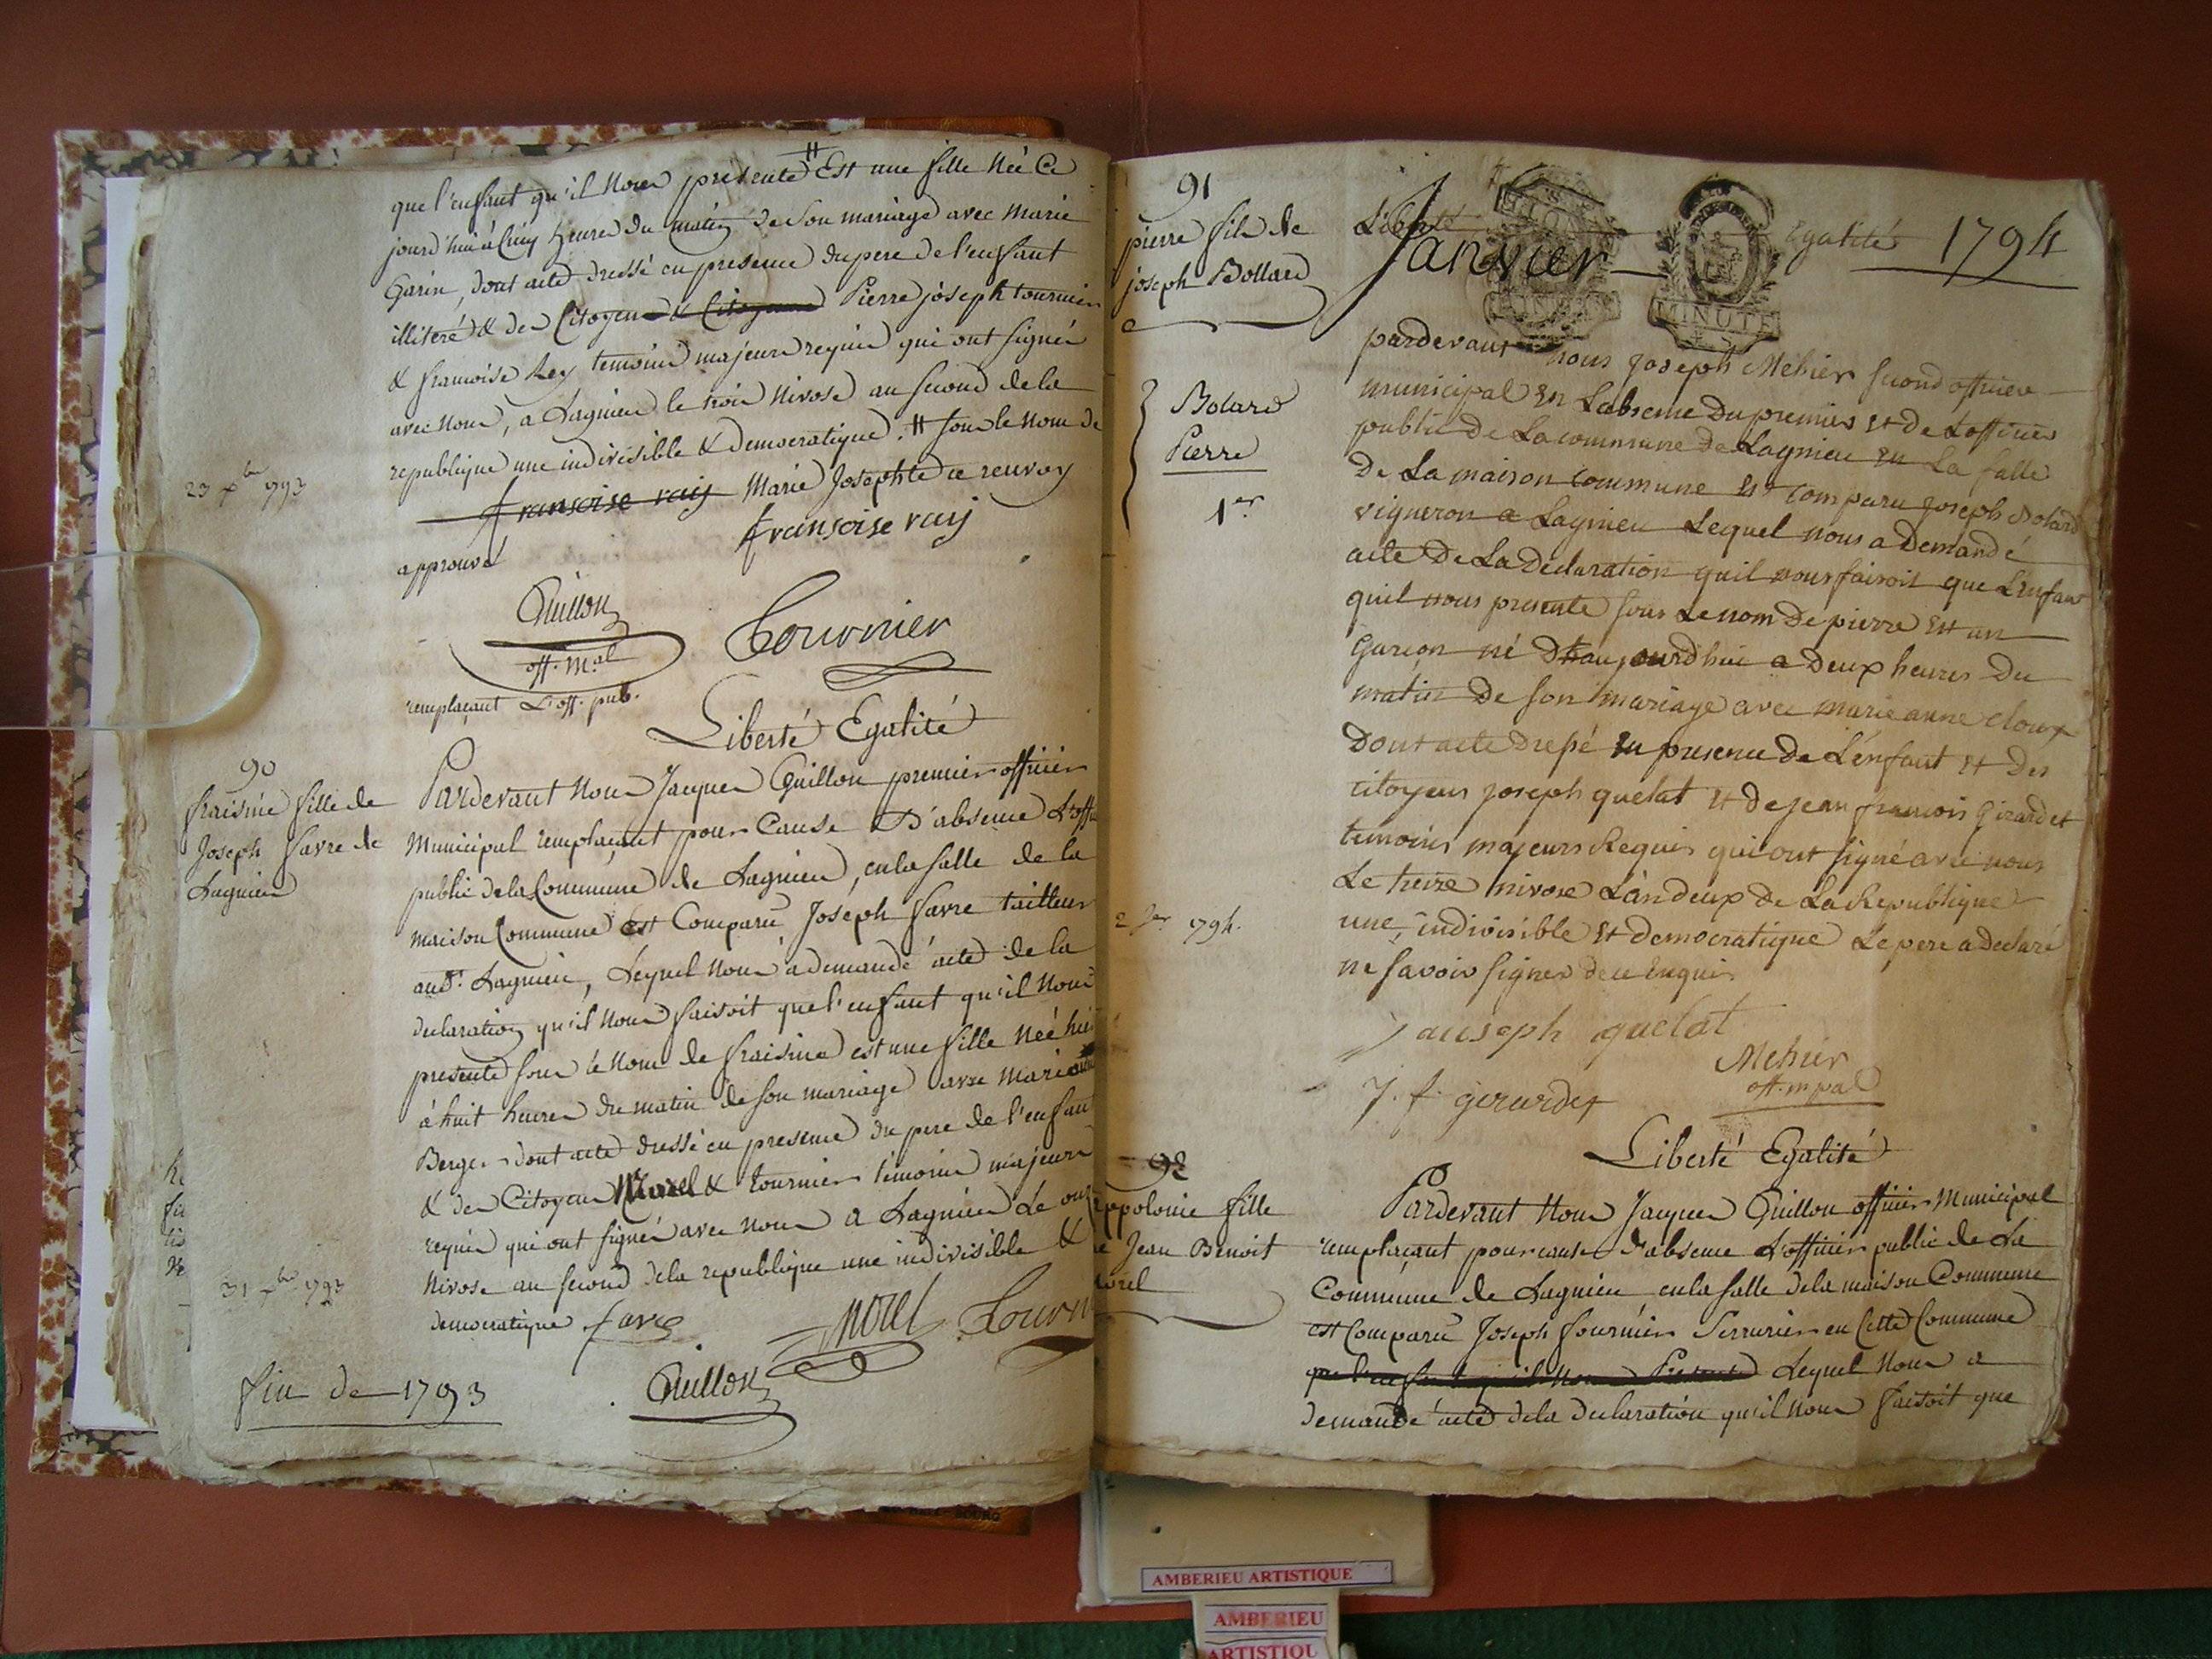 que l'enfant qu'il nous presente # Est une fille née Ce
jourd'hui à Cinq heures du matin de son mariage avec Marie
Garin, dont acte dressé en presence du pere de l'enfant
illiteré & des Citoyens & Citoyenne Pierre joseph tournier
& francoise Rey temoins majeurs requis qui ont signés
avec nous, a Lagnieu le trois Nivose an second de la
republique une indivisible & democratique. # sous le nom de
fransoise raij Marie Josephte ce renvoy
approuvé fransoise raij
23 xbre 1793
Guillon
off. M.al
remplaçant L'off. pub.
Tournier
Liberté Egalité
90
fraisine fille de
Joseph favre de
Lagnieu
Pardevant Nous Jacques Guillon premier officier
Municipal remplaçant pour Cause D'absence L'offi
public de la Commune de Lagnieu, en la salle de la
maison Commune Est Comparu Joseph favre tailleur
aud.t Lagnieu, Lequel Nous a demandé acte de la
declaration qu'il Nous faisoit que l'enfant qu'il Nous
presente sous le Nom de fraisine est une fille Née hier
à huit heures du matin de son mariage avec Marie anne
Berger dont acte dressé en presence du pere de l'enfant
& des Citoyens Morel & tournier témoins majeurs
requis qui ont signés avec nous a Lagnieu Le onze
Nivose an second de la republique une indivisible &
democratique favre
31 xbre 1793
morel Tourn
Guillon
fin de 1793
91
pierre fils de
joseph Bollard
Bolard
Pierre
1er
Liberté Egalité 1794
Janvier
MINUTE
pardevant nous Joseph Mehier second officier
municipal En Labsence du premier et de Lofficier
public de La commune de Lagnieu En La salle
de La maison commune Est comparu Joseph Bolard
vigneron a Lagnieu Lequel nous a demandé
acte de La declaration quil nous faisoit que Lenfant
quil nous presente sous Le nom de pierre Est un
Garçon né aujourdhui a deux heures du
matin de son mariage avec marie anne cloux
dont acte dressé en presence de L'enfant et des
citoyens joseph quelat et de jean francois Girardet
temoins majeurs Requis qui ont signé avec nous
Le treize nivose L'an deux de La Republique
une, indivisible et democratique Le pere a declaré
ne savoir signer de ce Enquis
2 Jer 1794.
jauseph quelat
J. f. gerardet
Mehier
off. mpal
Liberté Egalité
92
appolonie fille
de Jean Benoit
morel
Pardevant Nous Jacques Guillon officier Municipal
remplaçant pour cause d'absence L'officier public de La
Commune de Lagnieu en la salle de la maison Commune
est Comparu Joseph fournier Serrurier en Cette Commune
que l'enfant qu'il Nous Presente Lequel Nous a
demandé acte de la declaration qu'il Nous faisoit que
AMBERIEU ARTISTIQUE
AMBERIEU
ARTISTIQU